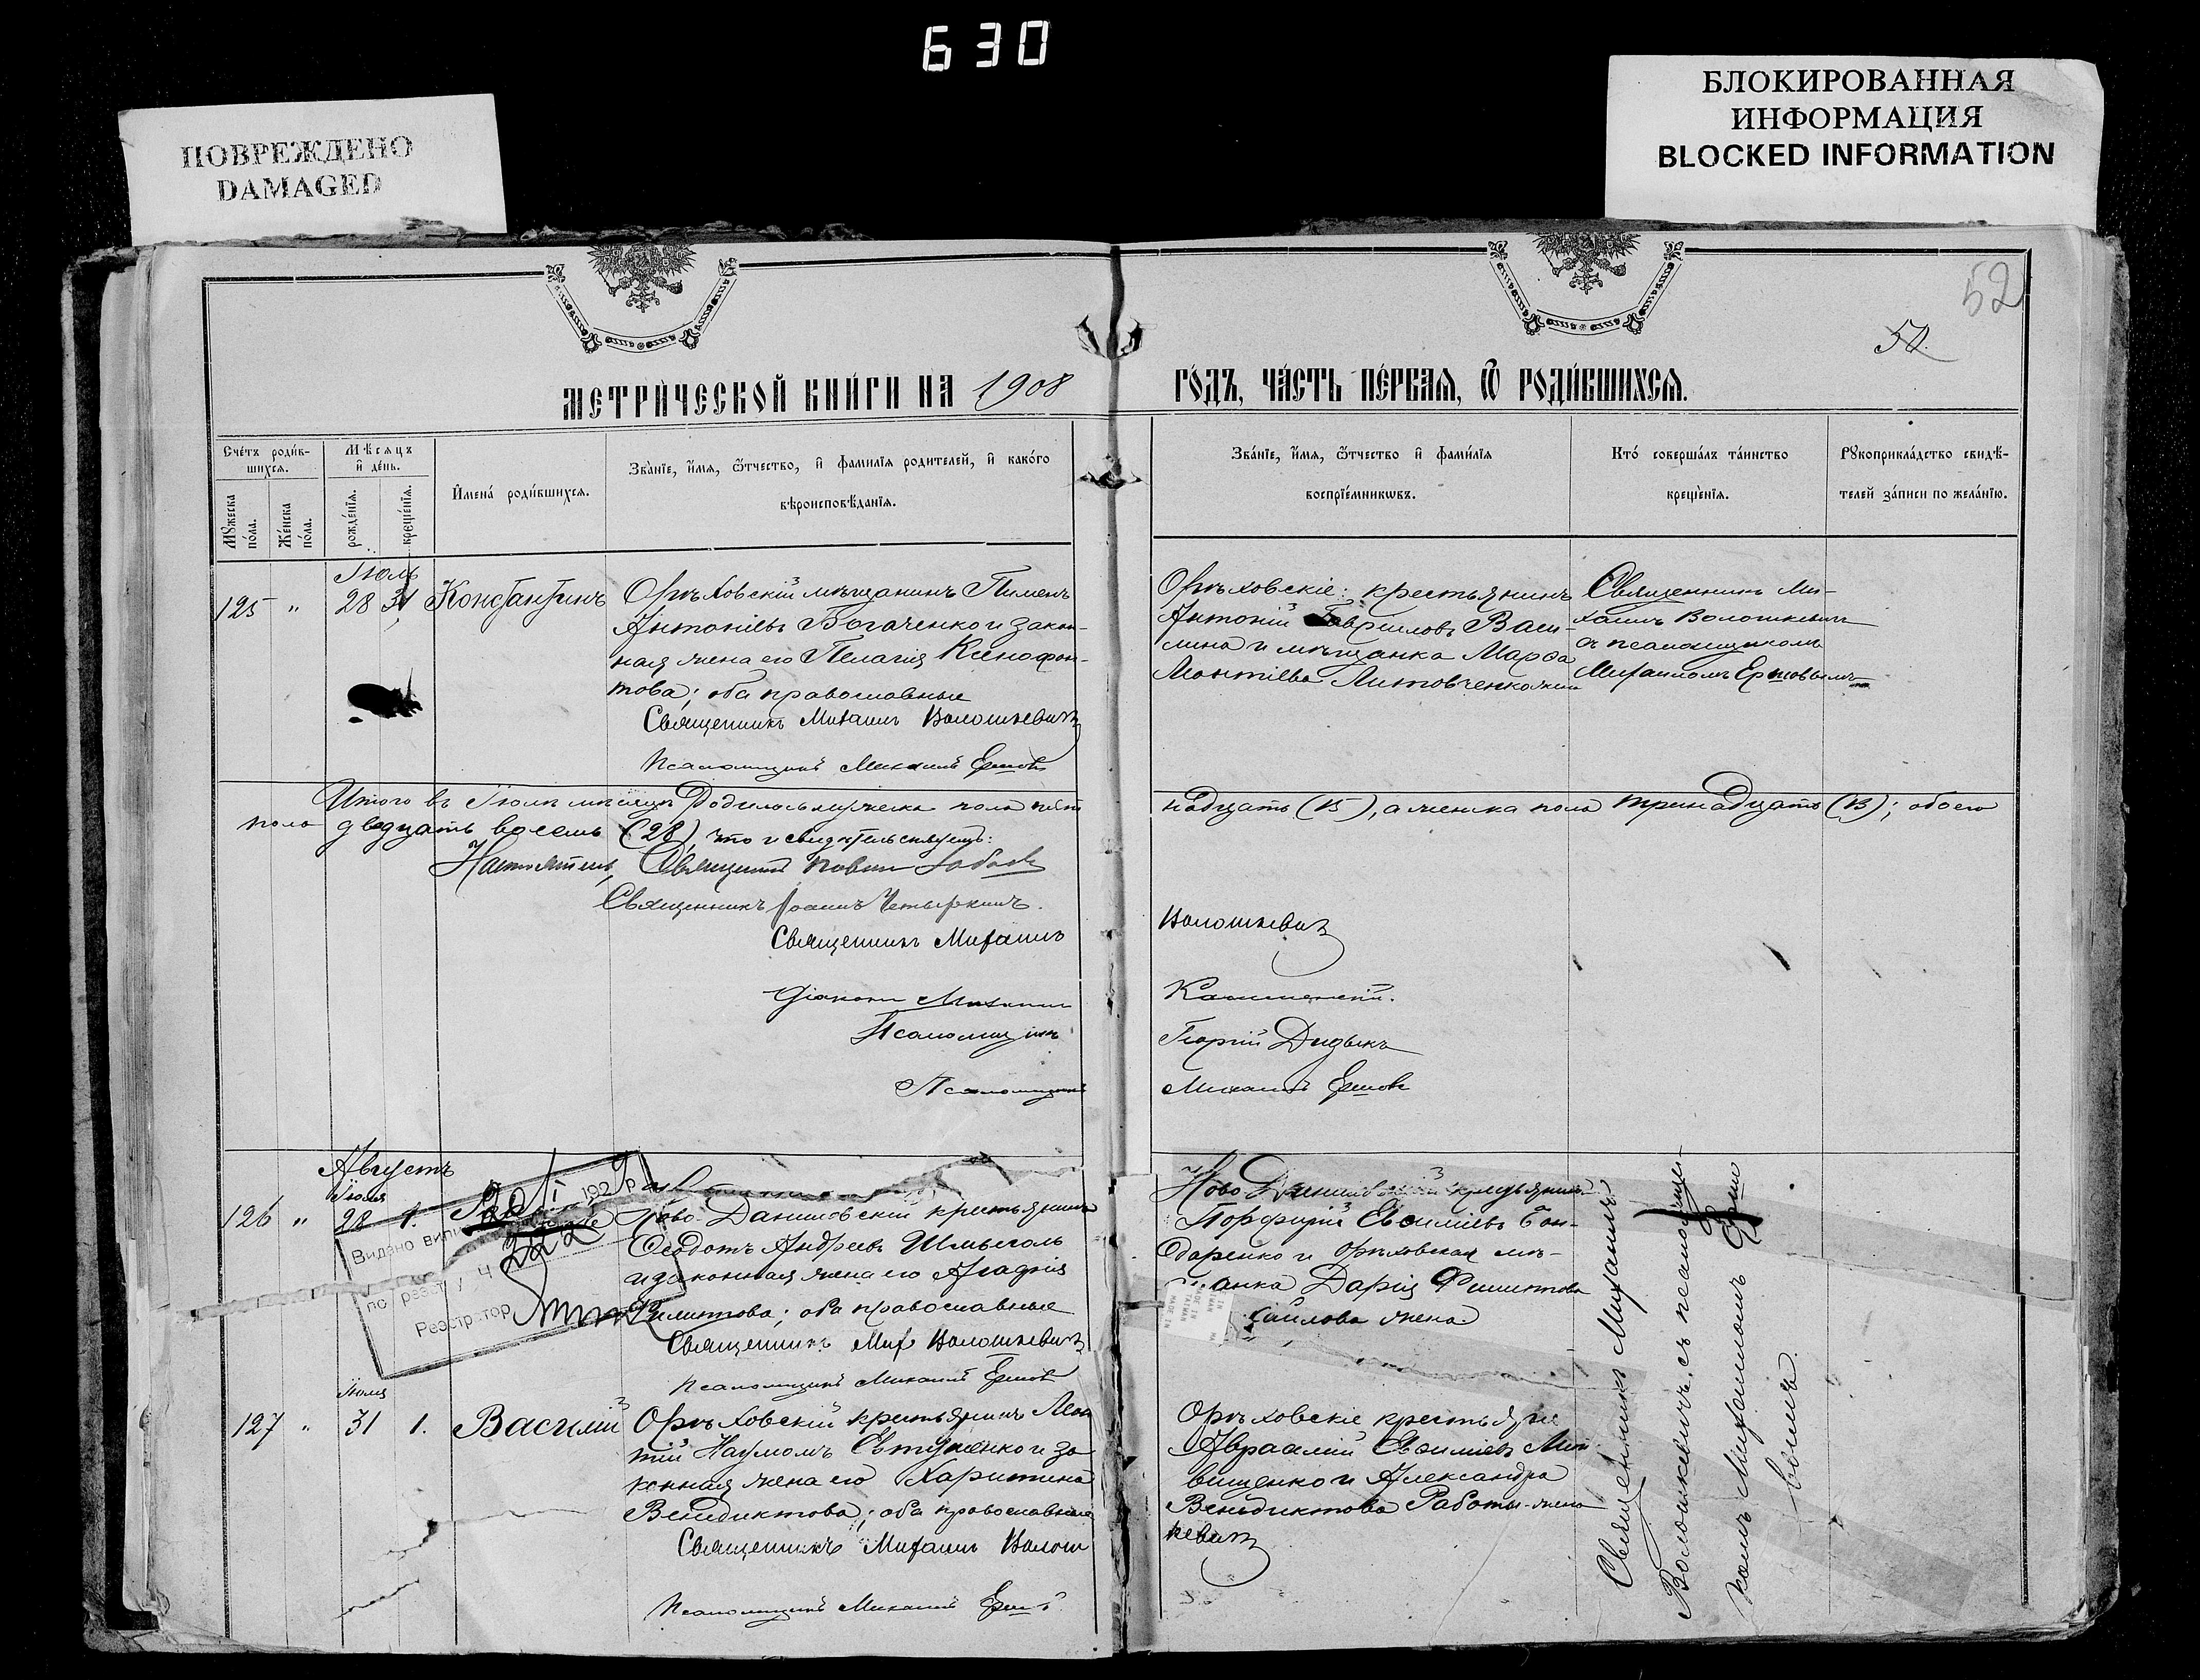 630
ПОВРЕЖДЕНО
DAMAGED
БЛОКИРОВАННАЯ
ИНФОРМАЦИЯ
BLOCKED INFORMATION
52
МЕТРИ́ЧЕСКОЙ КНИ́ГИ НА 1908
ГО́ДЪ, ЧА́СТЬ ПЕ́РВАЯ, Ѿ РОДИ́ВШИХСЯ.
Сче́тъ роди́в-
шихся.
Мѣ́сяцъ
и де́нь.
Мꙋжеска по́ла.
Же́нска по́ла.
рожде́нїя.
креще́нїя.
Имена́ роди́вшихся.
Зва́нїе, и́мя, ѻ́тчество, и фами́лїя роди́телей, и како́го
вѣроисповѣ́данїя.
Зва́нїе, и́мя, ѻ́тчество и фами́лїя
воспрїе́мникѡвъ.
Кто́ соверша́лъ та́инство
креще́нїя.
Рꙋкоприкла́дство свидѣ́-
телей за́писи по жела́нїю.
Іюль
125 " 28 31 Константинъ
Орѣховскій мѣщанинъ Пименъ
Антоніевъ Богаченко и закон-
ная жена его Пелагія Ксенофон-
това; оба православные
Священникъ Михаилъ Волошкевичъ
Псаломщикъ Михаилъ Ершовъ
Орѣховскіе: крестьянинъ
Антоній Гавриловъ Васи-
лина и мѣщанка Марѳа
Леонтіева Литовченкова
Священникъ Ми-
хаилъ Волошкевичъ
съ псаломщикомъ
Михаиломъ Ершовымъ
Итого въ Іюлѣ мѣсяцѣ родилось мужеска пола пят
надцать (15), а женска пола тринадцать (13); обоего
пола двадцать восемь (28), что и свидѣтельствуемъ:
Настоятель, Священникъ Павелъ
Священникъ Іоаннъ Четыркинъ.
Священникъ Михаилъ Волошкевичъ
Діаконъ Михаилъ
Псаломщикъ Георгій Дидыкъ
Псаломщикъ Михаилъ Ершовъ
Августъ
Іюля
126 " 28 1.
Видано випис
192 р
по реєстру Ч 322
Реєстратор
Ново-Даниловскій крестьянинъ
Ѳеодотъ Андреевъ Шмыголь
и законная жена его Агафія
Филиппова; оба православные
Священникъ Мих Волошкевичъ
Псаломщикъ Михаилъ Ершовъ
Ново Даниловскій крестьянинъ
Порфирій Евѳиміевъ Бон-
даренко и Орѣховская мѣ-
щанка Дарія Филиппова
жена
Іюля
127 " 31 1. Василій
Орѣховскій крестьянинъ Леон
тій Наумовъ Евтушенко и за
конная жена его Харитина
Венедиктова; оба православные
Священникъ Михаилъ Волош
кевичъ
Псаломщикъ Михаилъ Ершовъ
Орѣховскіе крестьяне
Авраамій Евѳиміевъ Лит
вищенко и Александра
Венедиктова Работы жена
Священникъ Михаилъ
Волошкевичъ, съ псаломщи-
комъ Михаиломъ Ершо
вымъ.